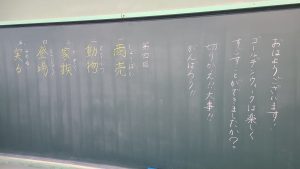 おはようございます!
ゴールデンウィークは楽しく
すごすことができましたか?
切りかえ!!大事!!
がんばろう!!
商売
動物
家族
登場
実る